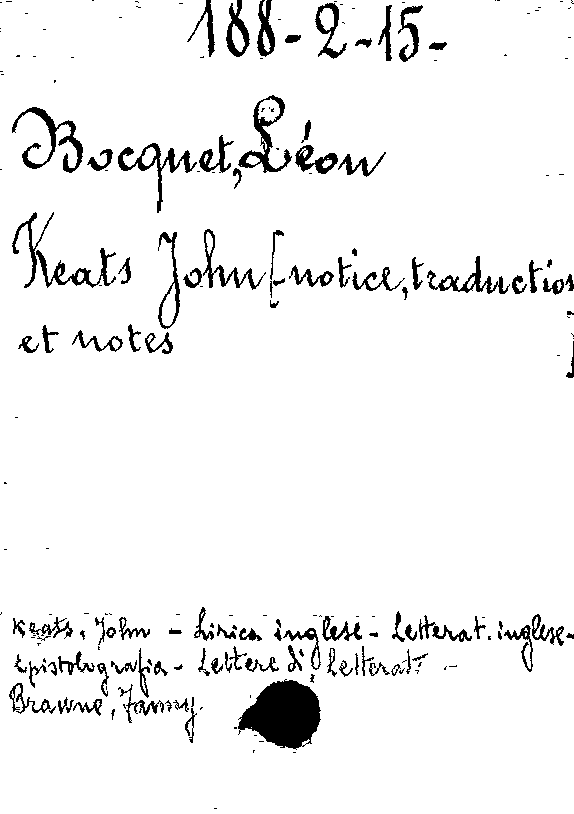 188-2-15-
Bocquet, Léon
Keats John [notice, traduction
et notes ]
Keats, John - Lirica inglese - Letterat. inglese-
Epistolografia - Lettere di Letterati -
Brawne, Fanny.